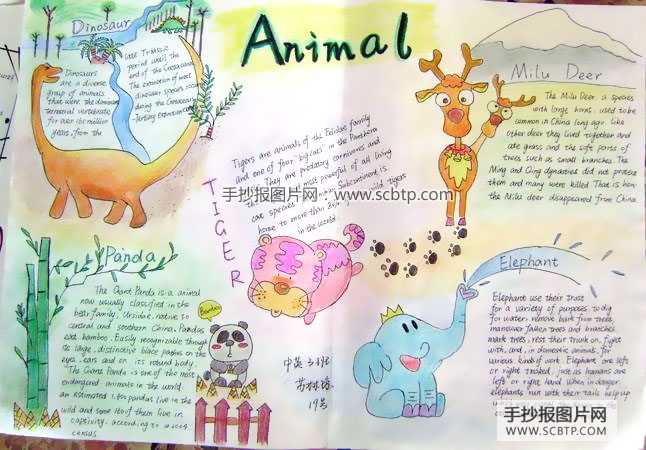 Animal
Dinosaur
Dinosaurs
are a diverse
group of animals
that were the dominant
terrestrial vertebrate
for over 160 million
years, from the
late Triassic
period until the
end of the Cretaceous
The extinction of most
dinosaur species occurred
during the Cretaceous
-Tertiary extinction
Milu Deer
The Milu Deer. a species
with large horns. used to be
common in China long ago. Like
other deer they lived together and
ate grass and the soft parts of
trees such as small branches. The
Ming and Qing dynasties did not protect
them and many were killed That is how
the Milu deer disappeared from China.
TIGER
Tigers are animals of the Felidae family
and one of four "big cats" in the Panthera
They are predatory carnivores and
the most powerful of all living
cat species. Indian Subcontinent is
home to more than wild tigers
in the world.
手抄报图片网 www.scbtp.com
Panda
The Giant Panda is a animal
now usually classified in the
bear family, Ursidae, native to
central and southern China, Pandas
eat bamboo. Easily recognizable though
its large, distinctive black patches on the
eyes, ears and on its robund body.
The Giants Panda is one of the most
endangered animals in the world.
an estimated 1,600 pandas live in the
wild and some 160 of them live in
captivity, according to a 2004
census
Bamboo
中英
19号
Elephant
Elephant use their trust
for a variety of purposes. to dig
for water. remove bark from trees
maneuver fallen trees and branches.
mark trees, rest their trunk on, fight
with, and, in domestic animals, for
various kinds of work. Elephant are left
or right tusked, just as humans are
left or right hand. When in danger.
elephants run with their tails help up
手抄报图片网
WWW.SCBTP.COM